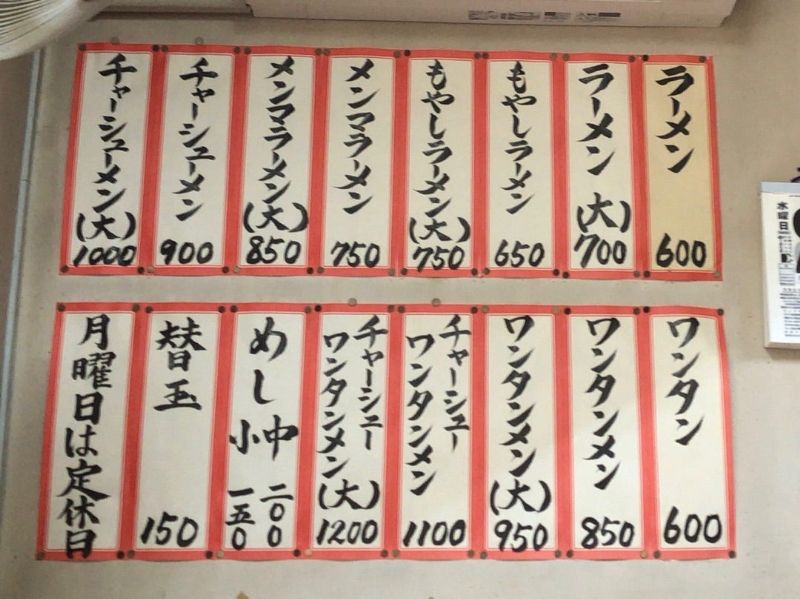 ラーメン 600
ラーメン (大) 700
もやしラーメン 650
もやしラーメン(大) 750
メンマラーメン 750
メンマラーメン(大) 850
チャーシューメン 900
チャーシューメン(大) 1000
ワンタン 600
ワンタンメン 850
ワンタンメン(大) 950
チャーシュー
ワンタンメン 1100
チャーシュー
ワンタンメン(大) 1200
めし 中 二〇〇
小 一五〇
替玉 150
月曜日は定休日
水曜日